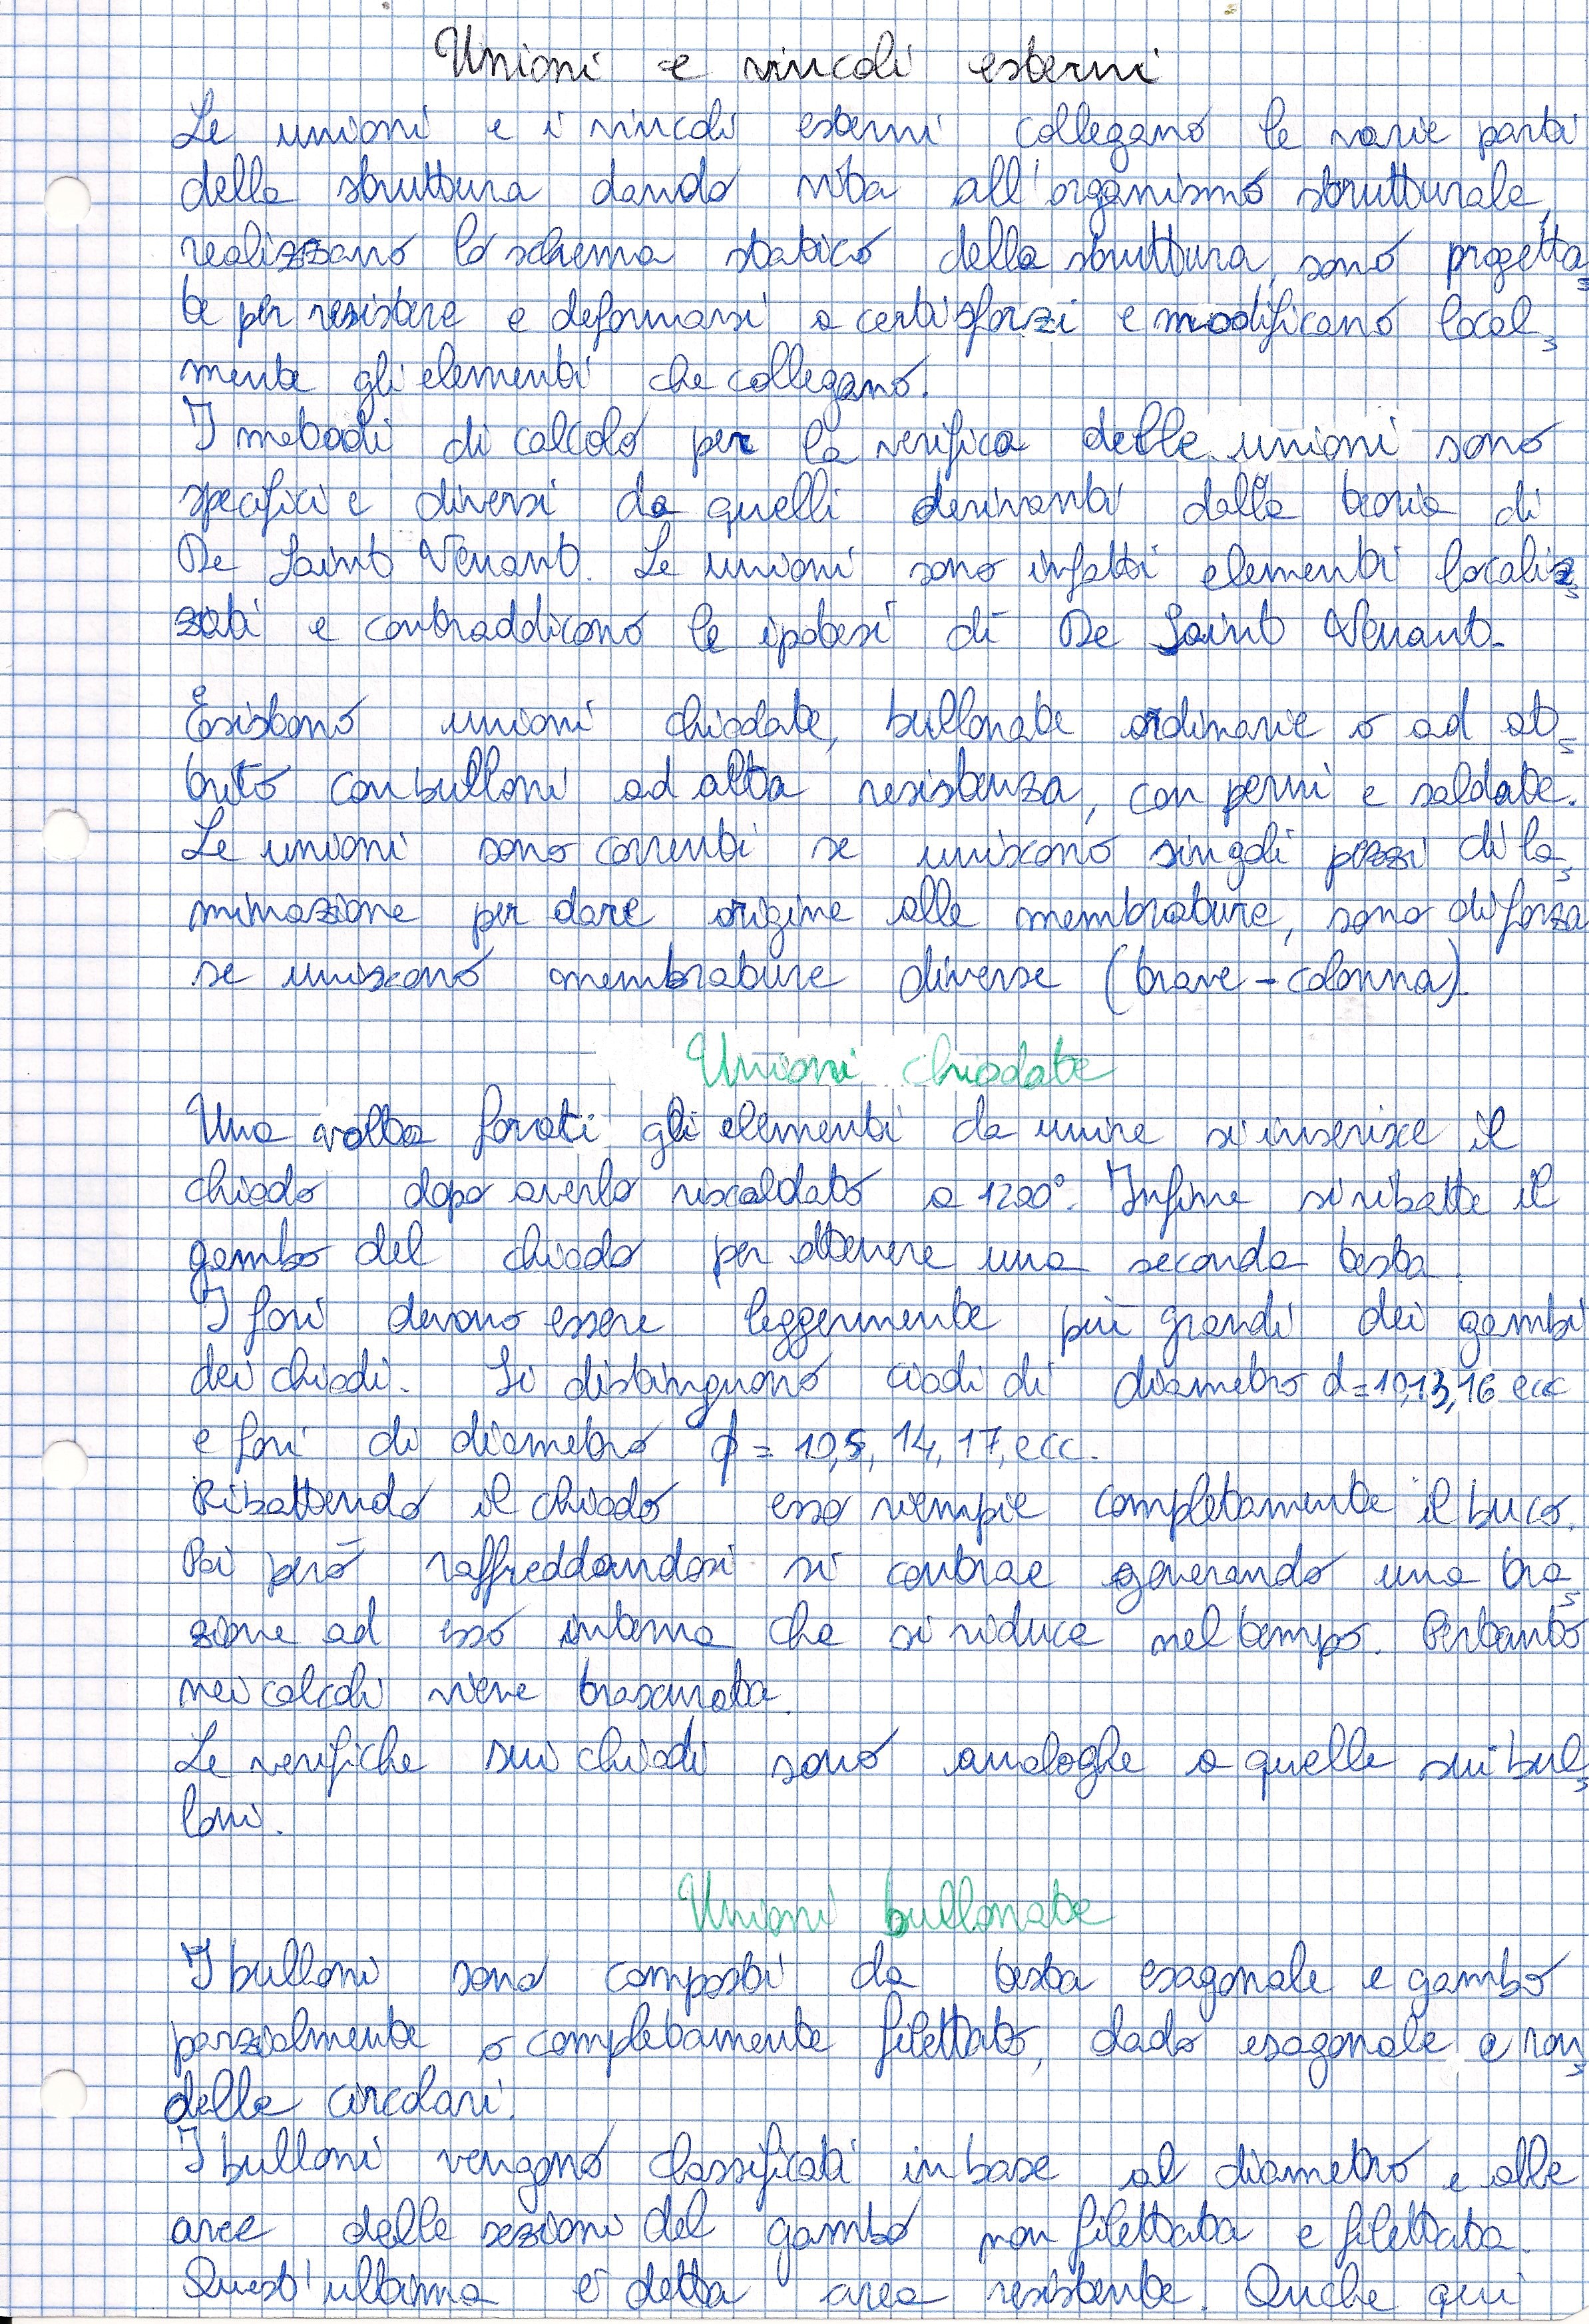 Unioni e vincoli esterni
Le unioni e i vincoli esterni collegano le varie parti
della struttura dando vita all'organismo strutturale,
realizzano lo schema statico della struttura, sono progetta
te per resistere e deformarsi a certi sforzi e modificano local
mente gli elementi che collegano.
I metodi di calcolo per la verifica delle unioni sono
specifici e diversi da quelli derivanti dalla teoria di
De Saint Venant. Le unioni sono infatti elementi localiz
zati e contraddicono le ipotesi di De Saint Venant.
Esistono unioni chiodate, bullonate ordinarie o ad at
trito con bulloni ad alta resistenza, con perni e saldate.
Le unioni sono correnti se uniscono singoli pezzi di la
minazione per dare origine alle membrature, sono di forza
se uniscono membrature diverse (trave-colonna).
Unioni chiodate
Una volta forati gli elementi da unire si inserisce il
chiodo dopo averlo riscaldato a 1200°. Infine si ribatte il
gambo del chiodo per ottenere una seconda testa.
I fori devono essere leggermente più grandi dei gambi
dei chiodi. Si distinguono ciodi di diametro d=10,13,16 ecc
e fori di diametro ϕ = 10,5, 14, 17, ecc.
Ribattendo il chiodo esso riempie completamente il buco.
Poi però raffreddandosi si contrae generando una tra
zione ad esso interna che si riduce nel tempo. Pertanto
nei calcoli viene trascurata.
Le verifiche sui chiodi sono analoghe a quelle sui bul
loni.
Unioni bullonate
I bulloni sono composti da testa esagonale e gambo
parzialmente o completamente filettato, dado esagonale e ron
delle circolari.
I bulloni vengono classificati in base al diametro e alle
aree delle sezioni del gambo non filettata e filettata.
Quest'ultima è detta area resistente. Anche qui